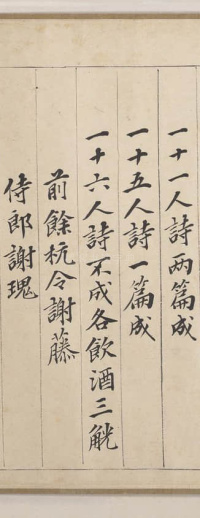 一十一人詩两篇成
一十五人詩一篇成
一十六人詩不成各飲酒三觥
前餘杭令謝藤
侍郎謝瑰